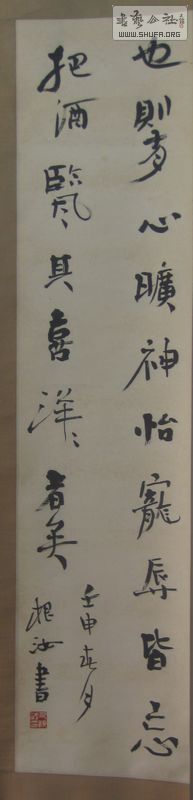 也則有心曠神怡寵辱皆忘
把酒臨風其喜洋〻者矣
壬申春月
根汝書
書藝公社
WWW.SHUFA.ORG